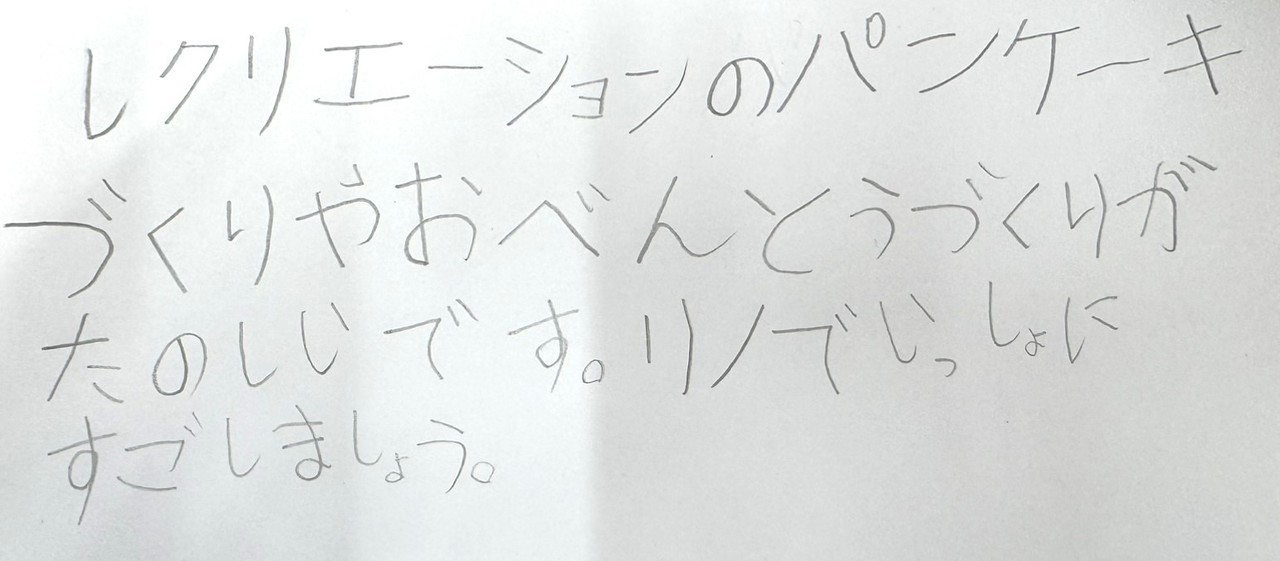 レクリエーションのパンケーキ
づくりやおべんとうづくりが
たのしいです。リノでいっしょに
すごしましょう。